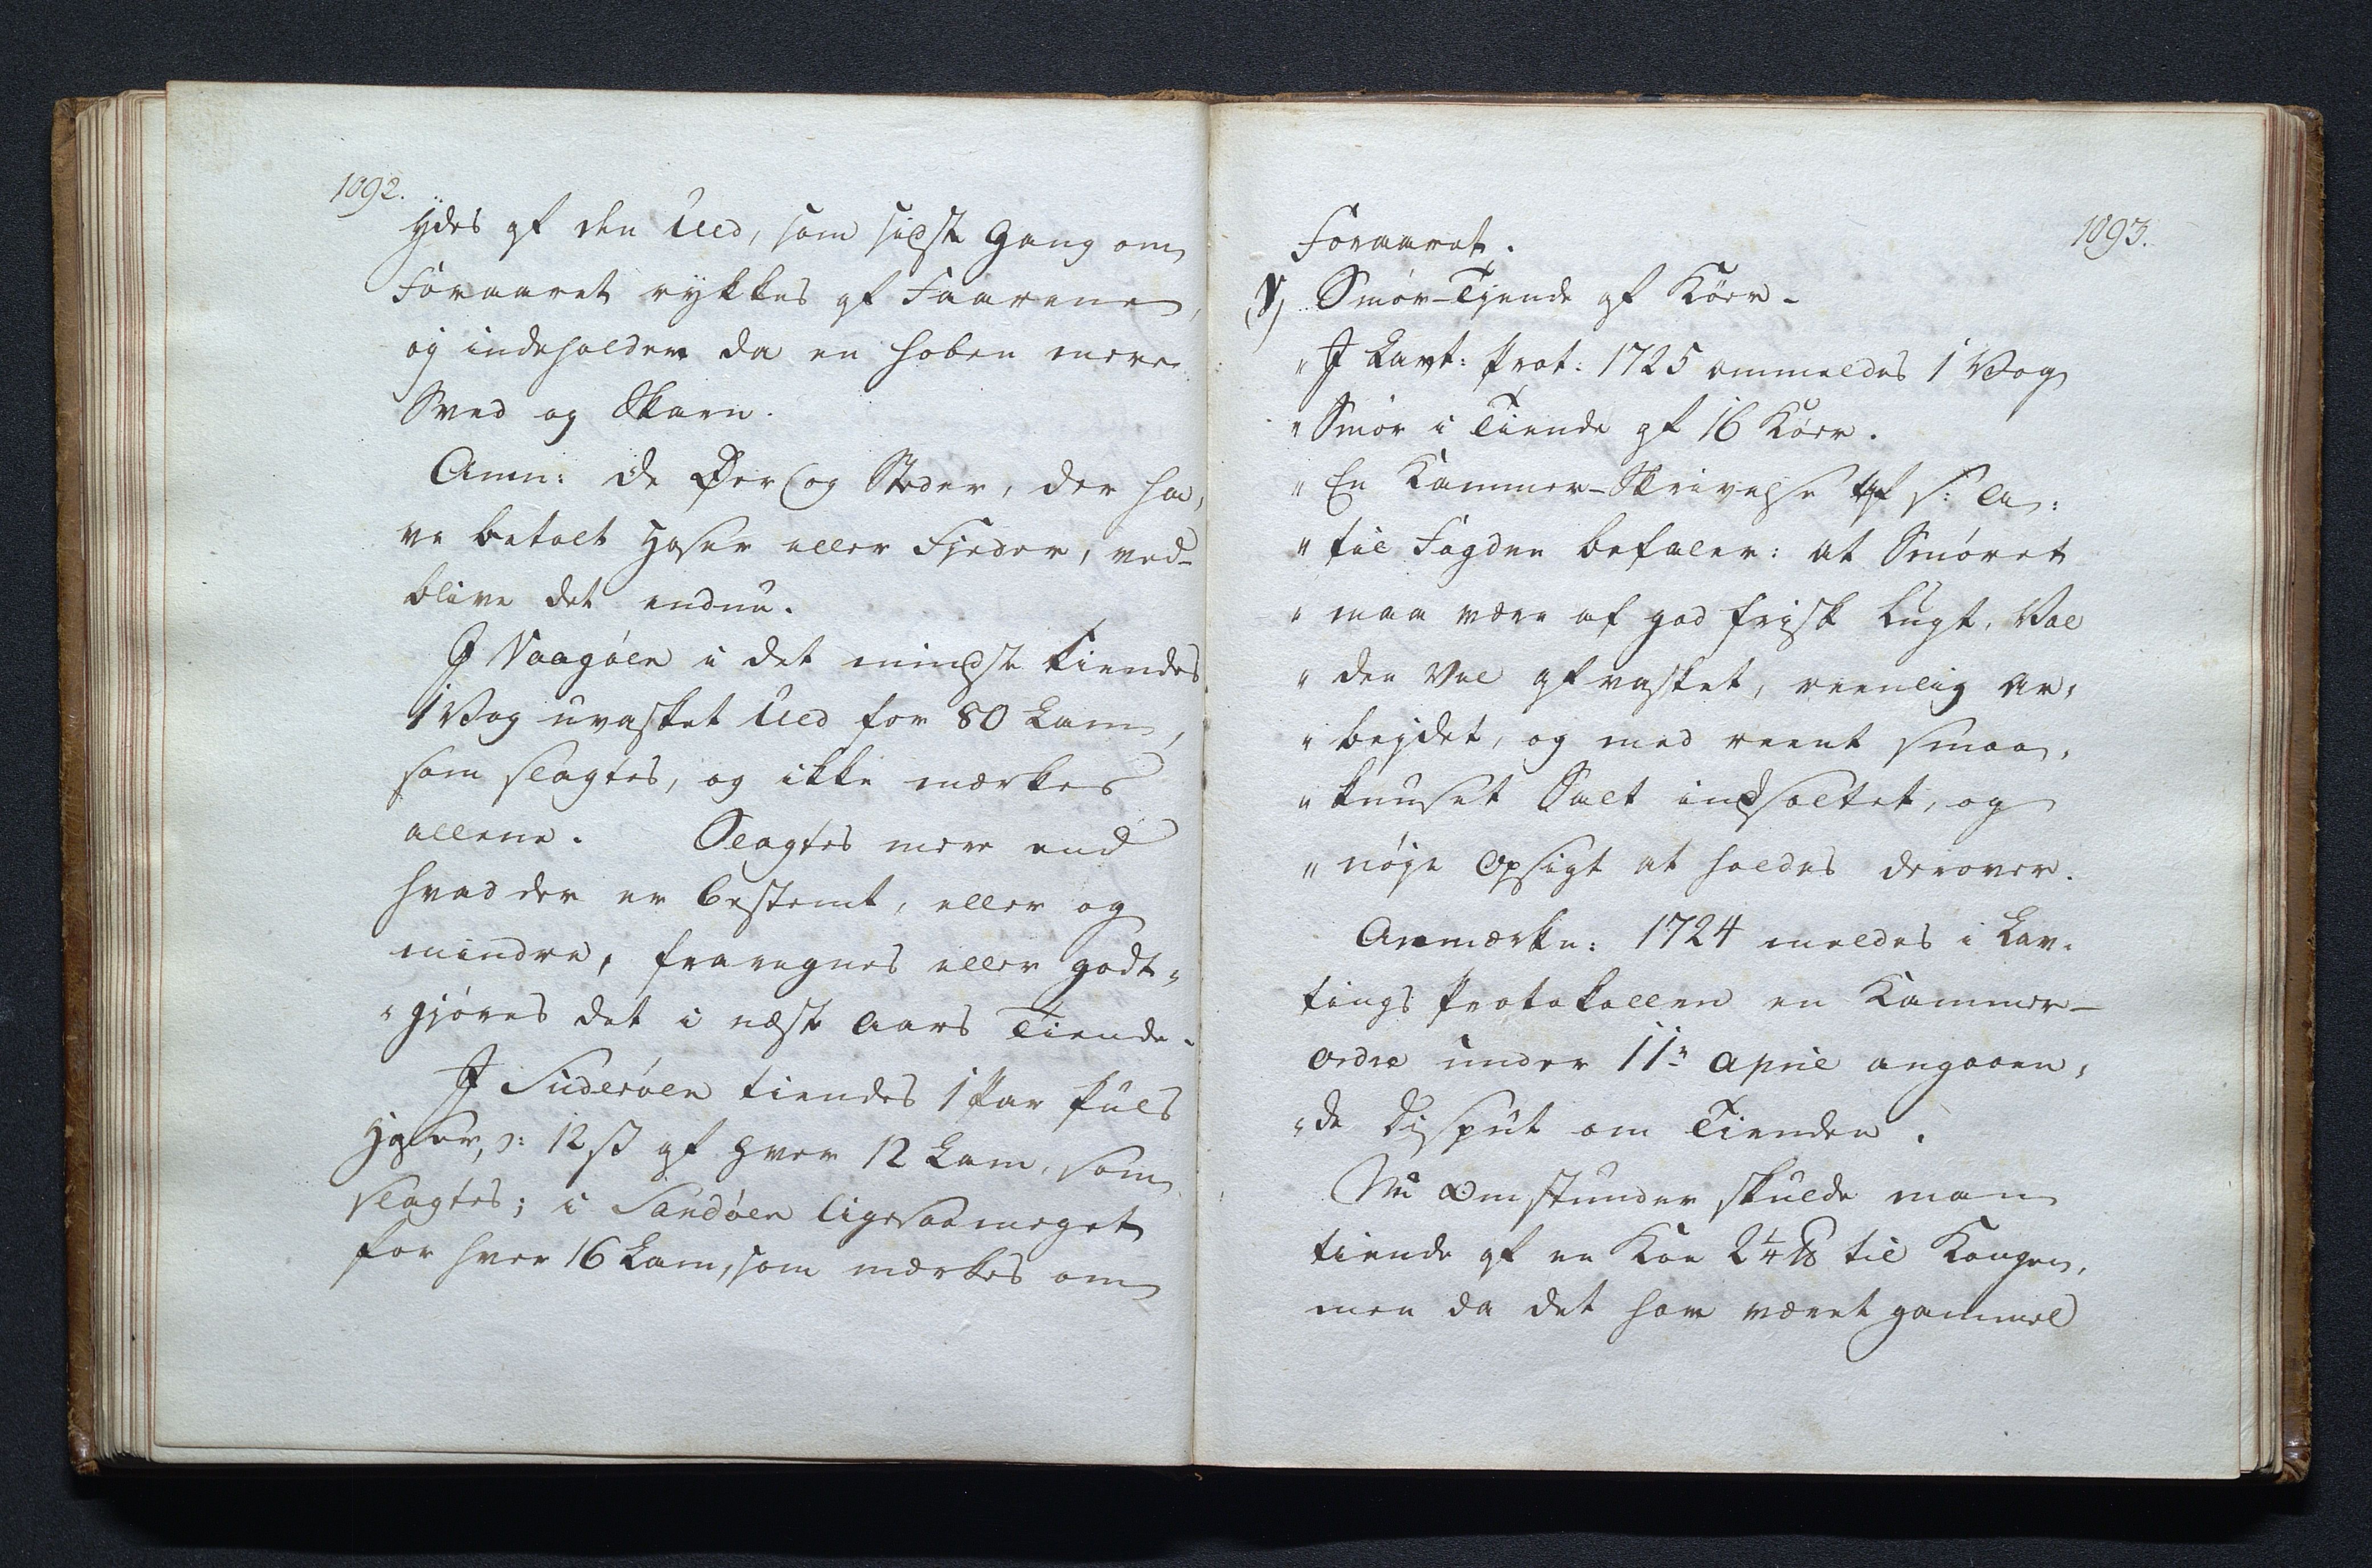 1092.
ydes af den Uld, som sidste Gang om
Foraaret rykkes af Faarene,
og indeholder da en hoben mere
Sved og Skarn.
Anm: de Øer og Steder, der ha,
ve betalt Hoser eller Fjeder, ved-
blive det endnu.
I Vaagöen i det mindste tiendes
1 Vog uvasket Uld for 80 Lam,
som slagtes, og ikke mærkes
allene. Slagtes mere end
hvad der er bestemt, eller og
mindre, fraregnes eller godt„
„gjöres det i næste Aars Tiende.
I Suderöen tiendes 1 Par Puls
Hoser, ɔ: 12 ß af hver 12 Lam, som
slagtes; i Sandöen ligesaameget
for hver 16 Lam, som mærkes om
1093.
Foraaret.
V) Smör-Tjende af Köer.
„ I Lavt: Prot: 1725 ommeldes 1 Vog
„ Smör i Tiende af 16 Köer.
„ En Kammer-Skrivelse af s: A:
„ til Fogden befaler: at Smöret
„ maa være af god frisk Lugt, Val
„ den vel afvasket, reenlig ar,
„ bejdet, og med reent smaa,
„ knuset Salt indsaltet, og
„ nöje Opsigt at holdes derover.
Anmærkn: 1724 meldes i Lav„
tings Protokollen en Kammer-
ordre under 11n April angaaen,
„de Disput om Tienden.
Nu Omstunder skulde man
tiende af en Koe 2 1/4 ℔ til Kongen,
men da det har været gammel